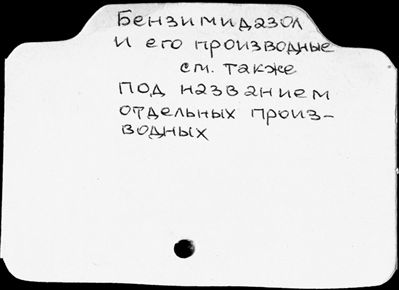 Бензимидазол
и его производные
см. также
под названием
отдельных произ-
водных